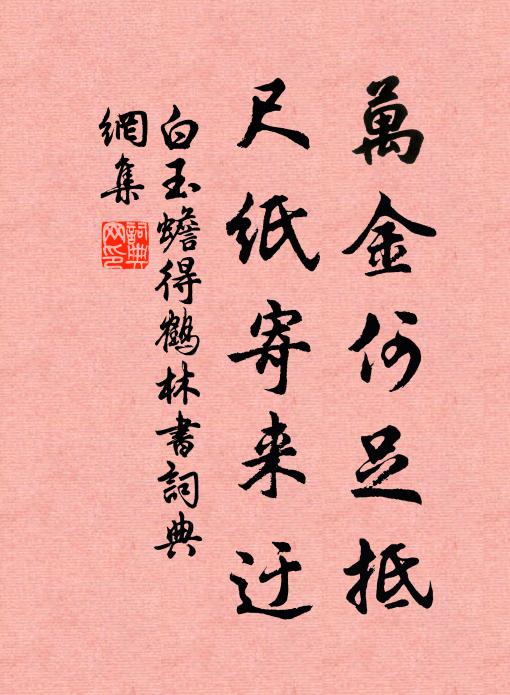 萬金何足抵
尺紙寄来迂
白玉蟾得鶴林書詞典
網集
詞典
网印